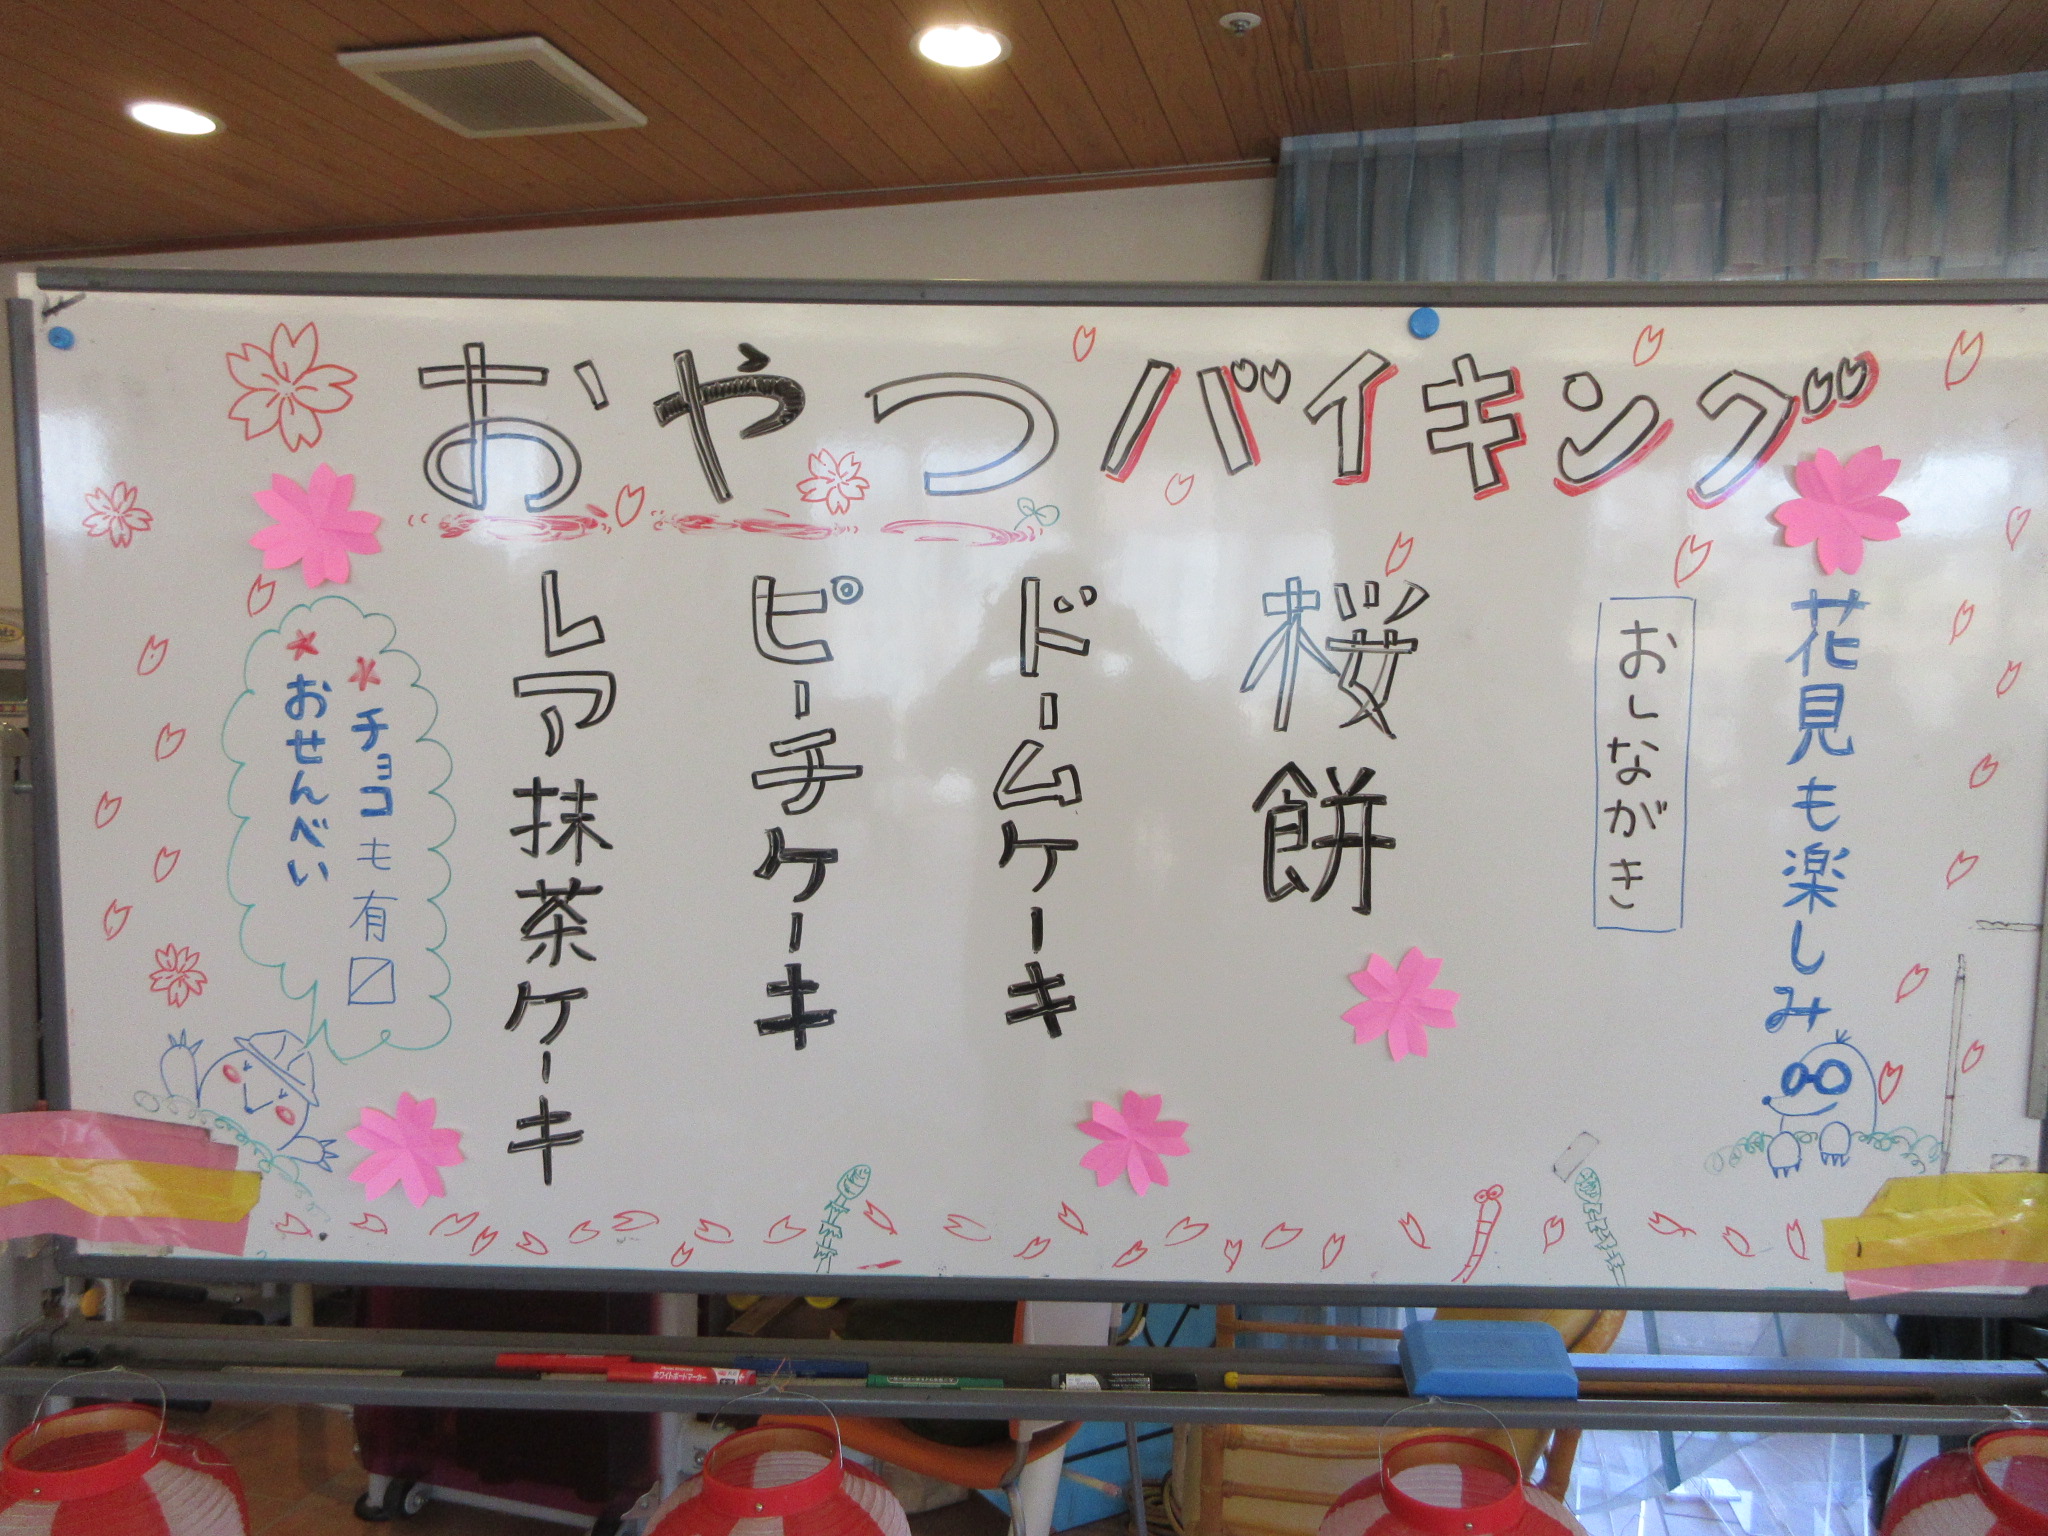 おやつバイキング
花見も楽しみ
おしながき
桜餅
ドームケーキ
ピーチケーキ
レア抹茶ケーキ
★チョコも有〼
★おせんべい
ホワイトボードマーカー